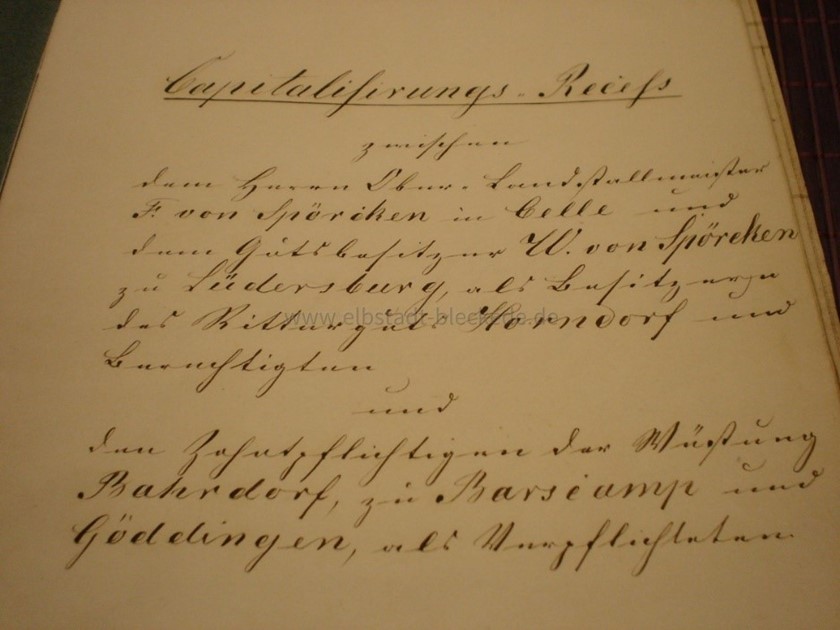 Capitalisirungs-Recess
zwischen
dem Herrn Ober-Landstallmeister
F. von Spörcken in Celle und
dem Gutsbesitzer W. von Spörcken
zu Lüdersburg, als Besitzern
des Ritterguts Horndorf und
Berechtigten
und
den Zehntpflichtigen der Wüstung
Bahrdorf, zu Barscamp und
Göddingen, als Verpflichteten
www.elbstadt-bleckede.de